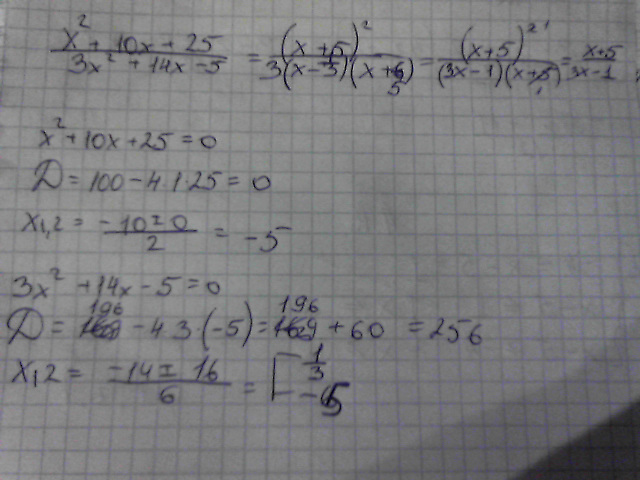 x² + 10x + 25 / 3x² + 14x - 5 = (x + 5)² / 3(x - 1/3)(x + 5) = (x+5)² ¹ / (3x - 1)(x+5) ₁ = x+5 / 3x-1 ;
x² + 10x + 25 = 0
D = 100 - 4·1·25 = 0
x1,2 = -10 ± 0 / 2 = -5
3x² + 14x - 5 = 0
D = 196 - 4·3·(-5) = 196 + 60 = 256
x1,2 = -14 ± 16 / 6 = [ 1/3
-5